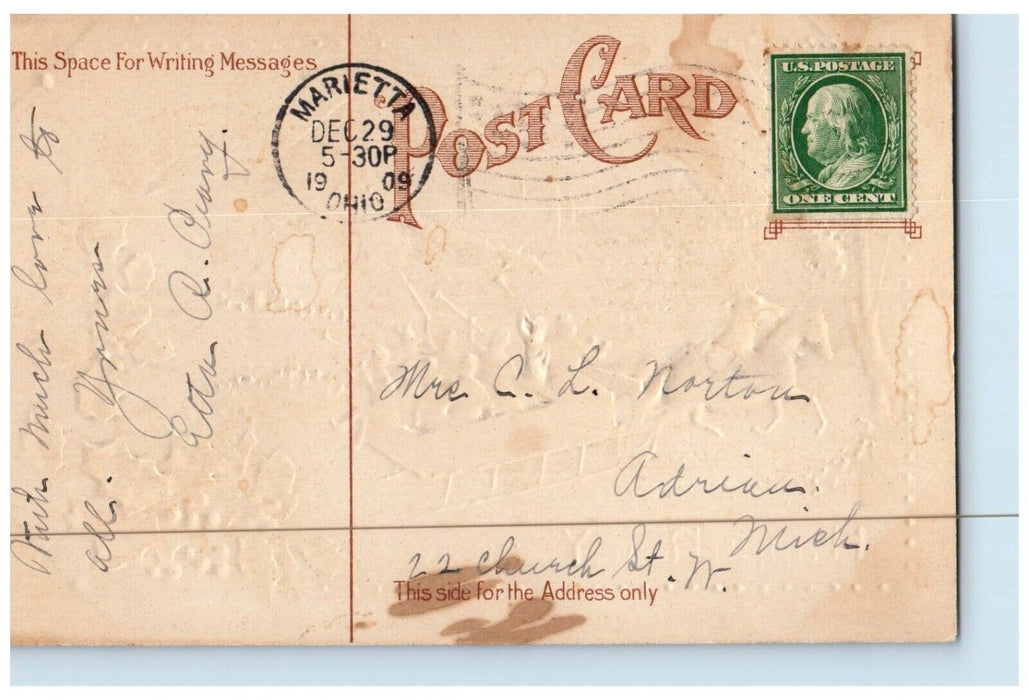 This Space For Writing Messages
POST CARD
MARIETTA
DEC 29
5-30P
1909
OHIO
U.S. POSTAGE
ONE CENT
With much love to
all.
Yours
Mrs. C. L. Norton
Adrian.
Mich.
22 Church St. W.
This side for the Address only